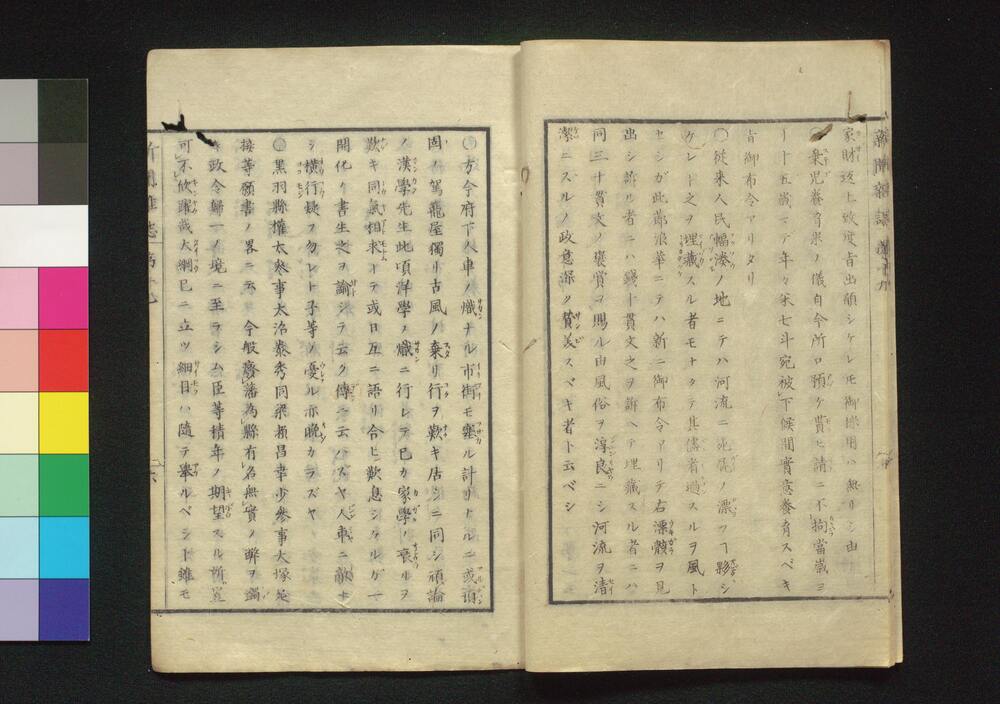 新聞雜誌
家財返上致度旨出願シケレモ御採用ハ無リシ由
〇棄児養育米ノ儀自今所ロ預ケ貰ヒ請ニ不拘當歳ヨ
リ十五歳マテ年々米七斗宛被下候間實意養育スベキ
旨御布令アリタリ
〇従来人民幅湊ノ地ニテハ河流ニ死屍ノ漂フヿ夥シ
ケレド之ヲ埋藏スル者モナクテ其儘看過スルヲ風ト
セシガ此節浪華ニテハ新ニ御布令アリテ右漂骸ヲ見
出シ訴ル者ニハ錢十貫文之ヲ訴ヘテ埋藏スル者ニハ
同三十貫文ノ褒賞ヲ賜ル由風俗ヲ淳良ニシ河流ヲ清
潔ニスルノ政意深ク賛美スベキ者ト云ベシ
〇方今府下人車ノ熾ナル市街モ塞ル計リナルニ或頑
固ノ駕籠屋獨リ古風ノ棄リ行ヲ歎キ居シニ同シ頑論
ノ漢學先生此頃洋學ノ熾ニ行レテ已カ家學ノ衰ルヲ
歎キ同氣相求メテ或日互ニ語リ合ヒ歎息シケルゲ一
開化ノ書生之ヲ諭シテ云ク傳ニ云ハズヤ人車ニ敵ナ
シ横行疑フ勿レト子等ノ憂ル亦晩カラズヤ
〇黒羽縣權大參事大治泰秀同瀬昌幸少參事大塚
接等願書ノ畧ニ云今般廢藩為縣有名無實ノ弊ヲ蠲
政令歸一ノ境ニ至ラシム臣等積年ノ期望スル所豈
可不欣躍哉大綱已ニ立ツ細目ハ隨テ擧ルベシト雖モ
新聞雜誌